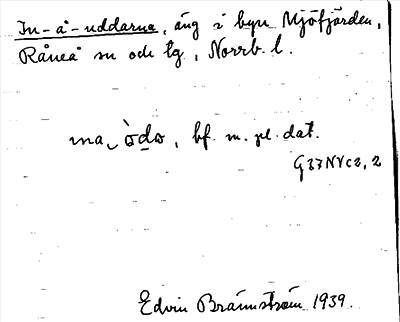 In-å-uddarna, äng i byn Mjöfjärden,
Råneå sn och tg, Norrb. l.
bf. m. pl. dat.
Edvin Brännström 1939.